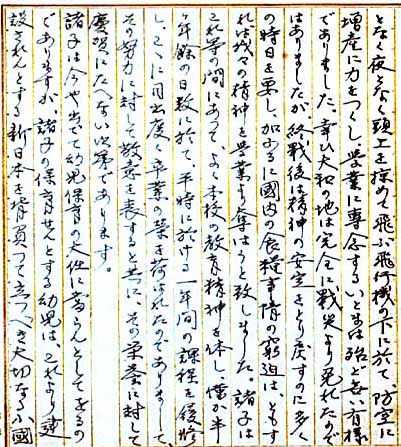 となく夜となく頭上を掠めて飛ぶ飛行機の下に於て防空に
増産に力をつくし学業に専念するいとまは殆ど無い有様
でありました。幸ひ大和の地は完全に戦災より免れたので
はありましたが、終戦後は精神の安定をとり戻すのに多く
の時日を要し、加ふるに國内の食糧事情の窮迫は、ともす
れば我々の精神を学業より奪はうと致しました。諸子は
これ等の間にあつてよく本校の教育精神を体し、僅か半
年餘の日数に於て、平時に於ける一年間の課程を修
し、こゝに目出度く卒業の栄を荷はれたのでありまして、
その努力に対して敬意を表すると共に、その栄誉に対して
慶賀にたへない次第であります。
諸子は今や出でて幼児保育の大任に當らんとしてをるの
でありますが、諸子の保育せんとする幼児は、これより建
設されんとする新日本を背負つて立つべき大切なる小國